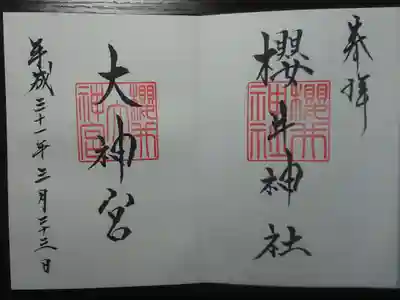 奉拝
櫻井神社
櫻井神社
大神宮
櫻井大神宮
平成三十一年三月二十三日